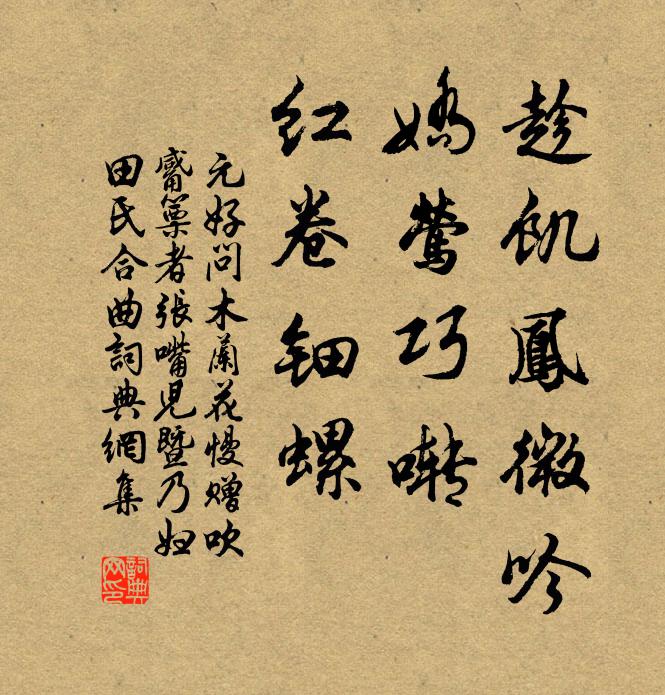 趁飢鳳微吟
嬌鶯巧囀
紅卷鈿螺
元好問木蘭花慢赠吹
觱篥者張嘴兒暨乃婦
田氏合曲詞典網集
詞典
网印